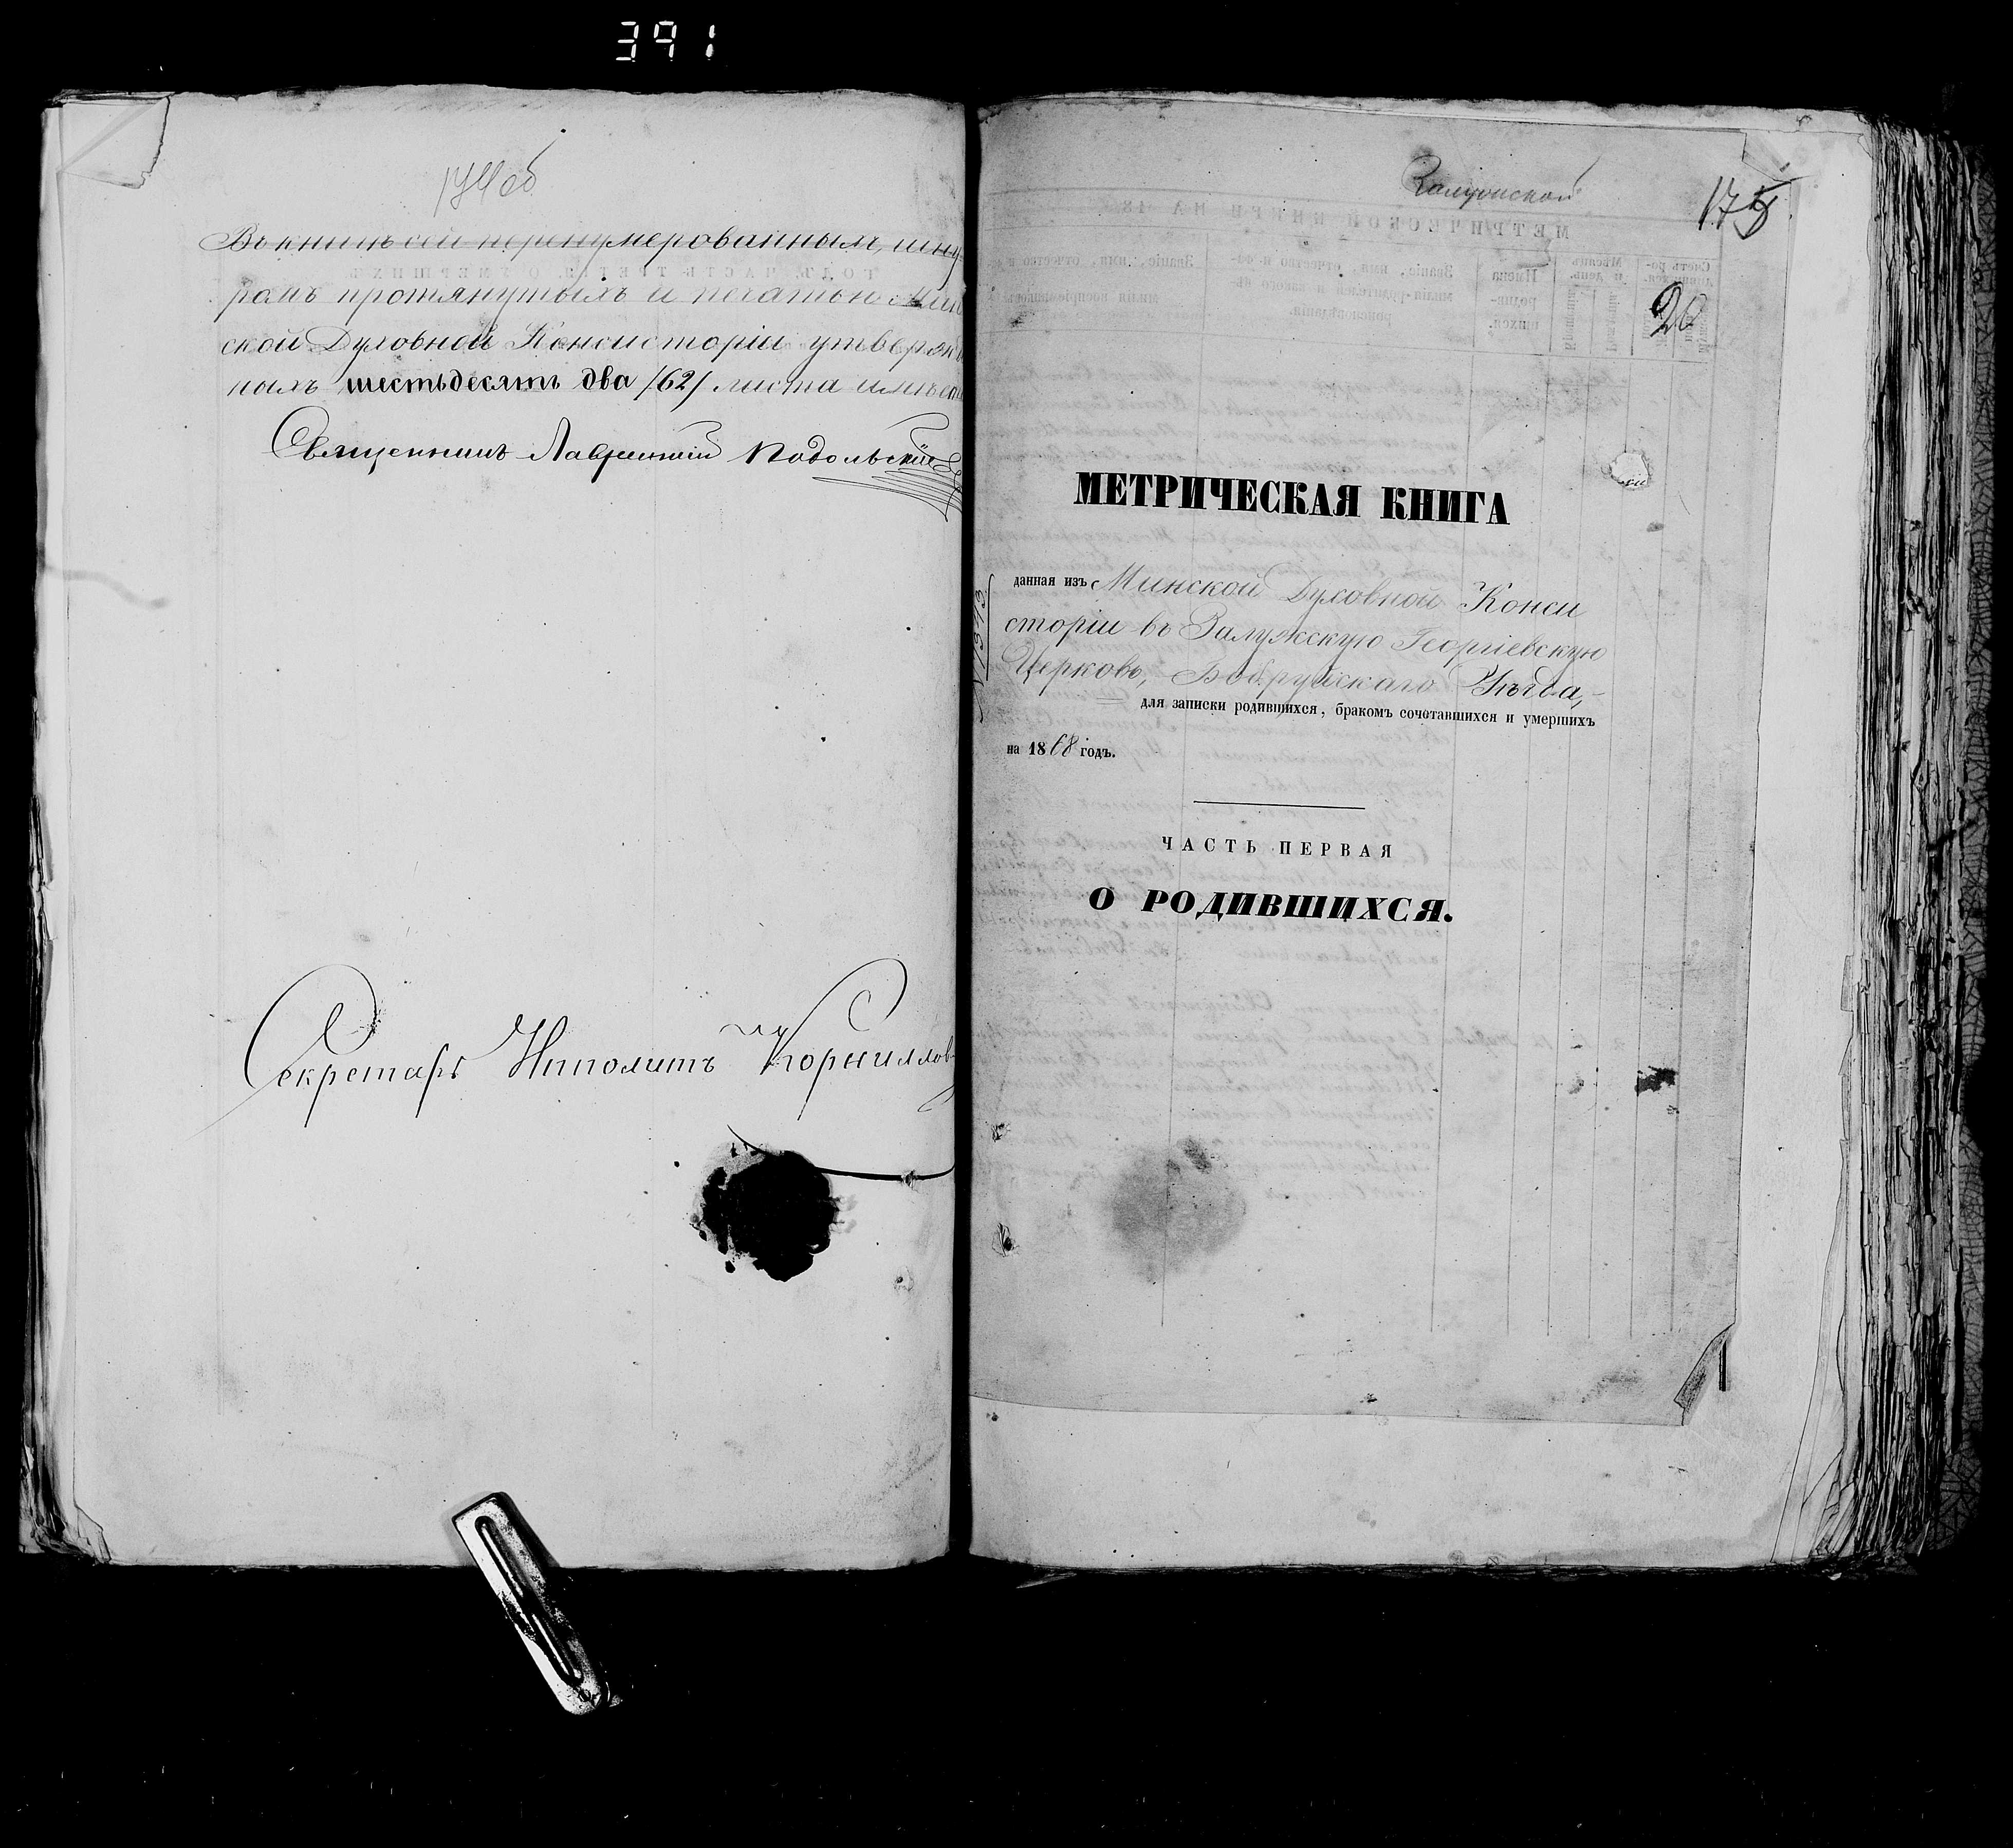 391
174об
Въ книгѣ сей перенумерованныхъ, шну
ромъ протянутыхъ и печатью Мин
ской Духовной Консисторіи утвержд
ныхъ шестьдесятъ два /62/ листа имѣет
Священникъ Подольскій
Секретарь Ипполитъ Корниллов
175
20
МЕТРИЧЕСКАЯ КНИГА
данная изъ Минской Духовной Конси
сторіи въ Залужскую Георгіевскую
Церковь, Бобруйскаго Уѣзда,
для записки родившихся, бракомъ сочетавшихся и умершихъ
на 1868 годъ.
ЧАСТЬ ПЕРВАЯ
О РОДИВШИХСЯ.